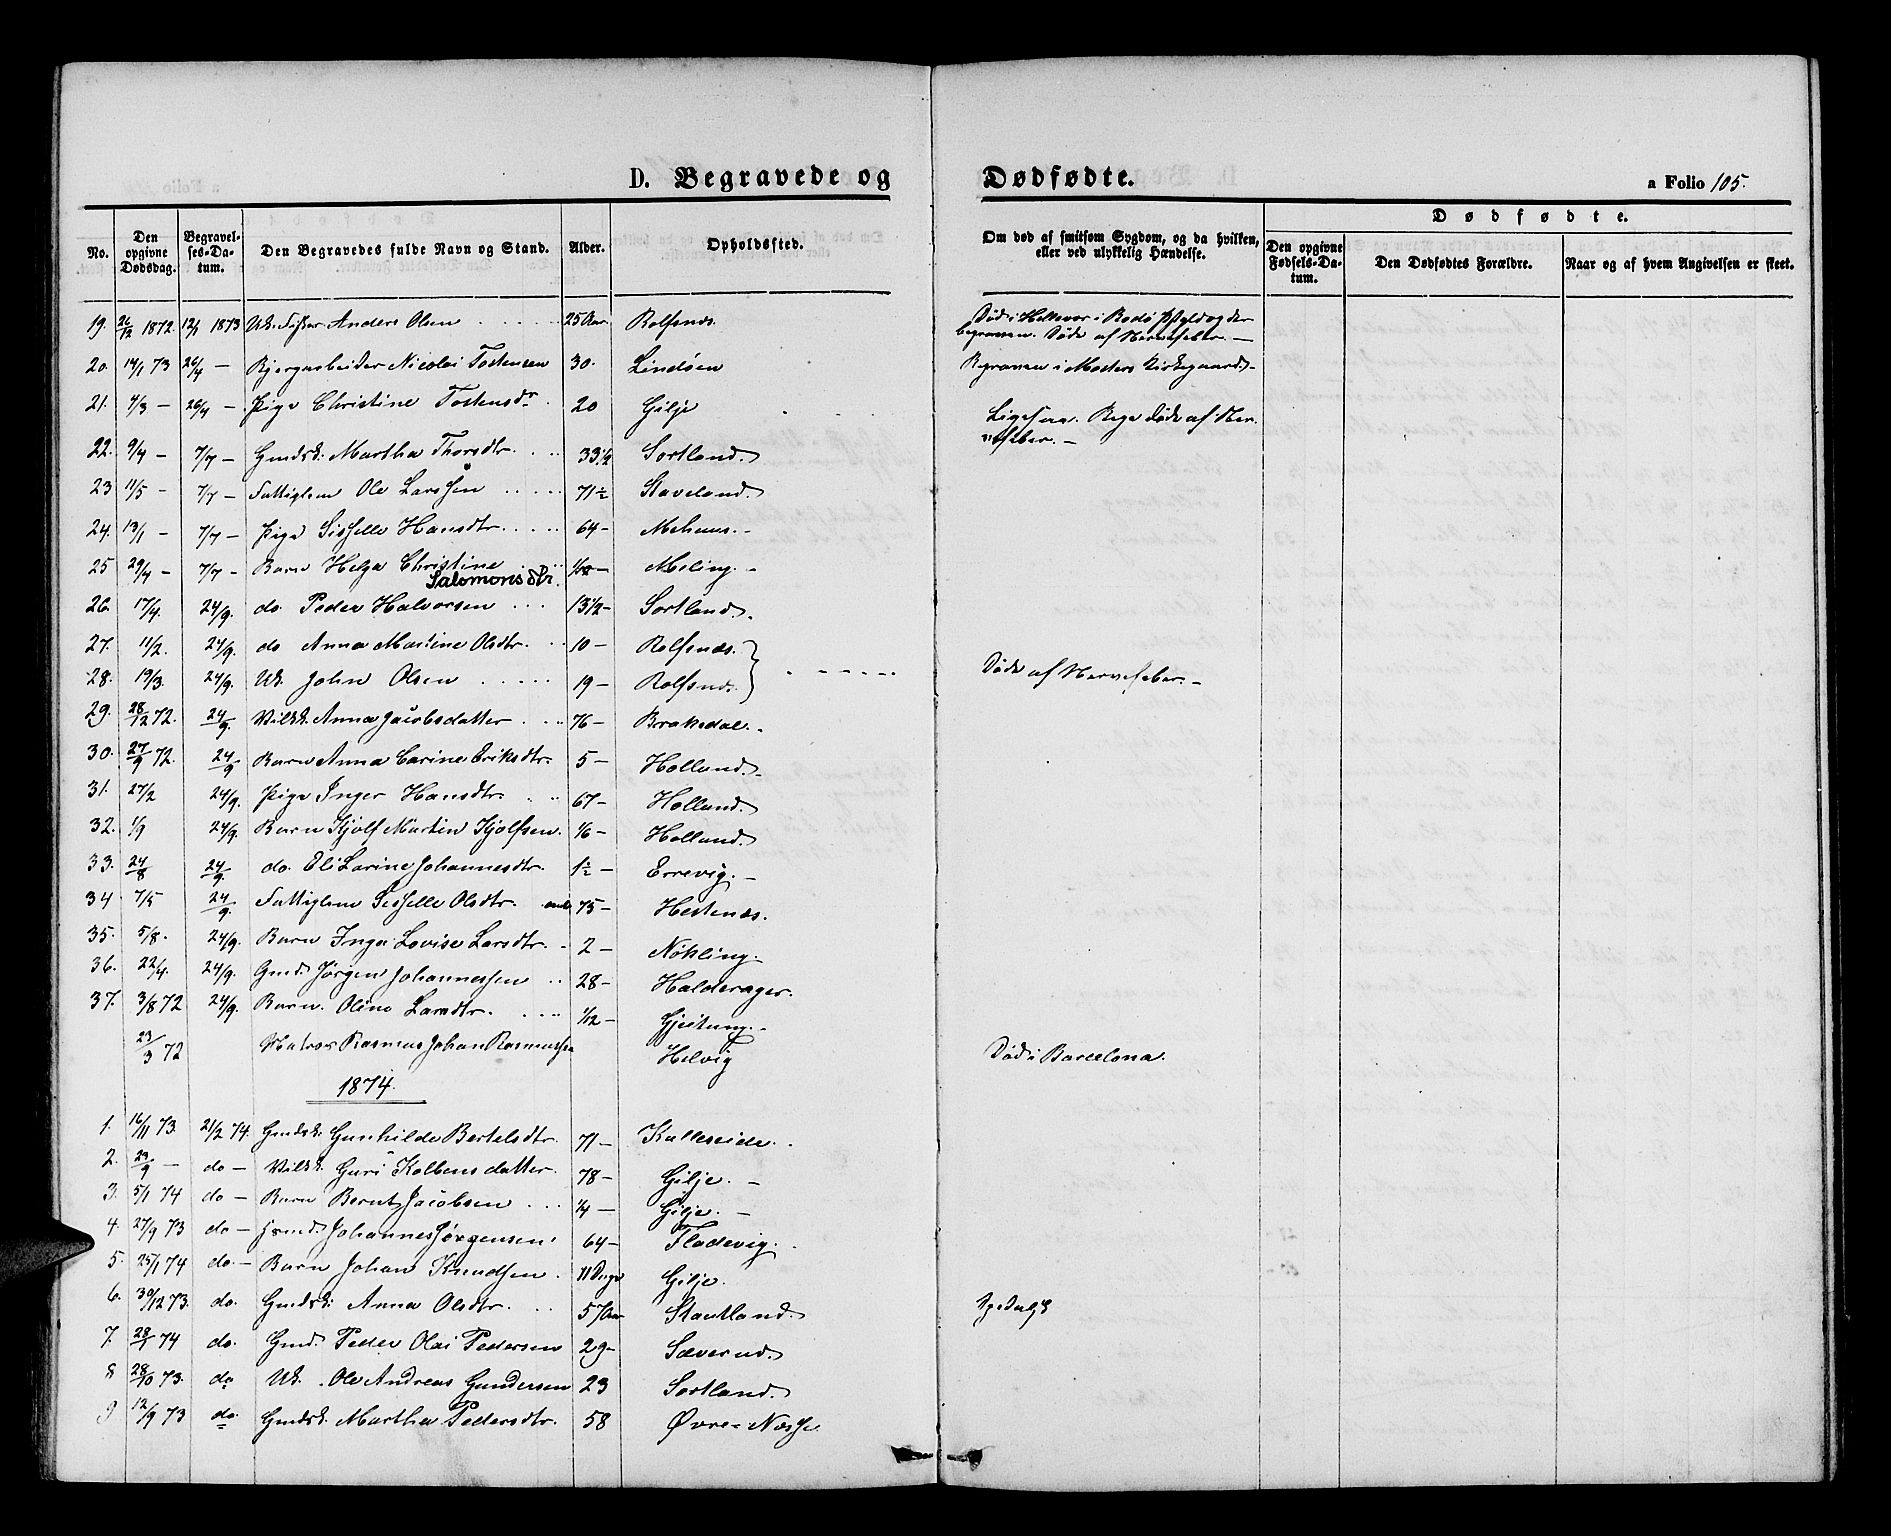 D. Begravede og Dødfødte.
a Folio 105.
No. Den opgivne Dødsdag. Begravelses-Datum. Den Begravedes fulde Navn og Stand. Alder. Opholdssted. Om død af smitsom Sygdom, og da hvilken, eller ved ulykkelig Hændelse. Dødfødte. Den opgivne Fødsels-Datum. Den Dødfødtes Forældre. Naar og af hvem Angivelsen er skeet.
19. 26/12 1872. 12/1 1873 Uk. Fisker Anders Olsen 25 Aar Rolfsnæs. Død i og der begraven. Døde af Nervefeber. —
20. 14/1 73 26/4 — Bjergarbeider Nicolai Tostensen 30. Lindøen Begraven i Mosters Kirkegaard. –
21. 4/3 — 26/4 — Pige Christine Tostensdr 20 Gilje Ligesaa. Pige døde af Nervefeber. –
22. 9/4 — 7/7 — Gmdsk. Martha Thorsdtr. 33 1/2 Sortland.
23 11/5 — 7/7 — Fattiglem Ole Larssen 71 1/2 Staveland.
24. 13/1 — 7/7 — Pige Sisselle Hansdtr. 64 — Mehuus. –
25 29/4 — 7/7 — Barn Helga Christine Salomonsdtr. Meling. –
26. 17/4. 24/9. do. Peder Halvorsen 13 1/2 — Sortland.
27. 11/2. 24/9. do Anna Martine Olsdtr. 10 — Rolfsnæs.
28. 19/3. 24/9. Uk. John Olsen 19 — Rolfsnæs. Døde af Nervefeber. –
29. 28/12 72. 24/9. Vilkk. Anna Jacobsdatter 76 — Brakedal.
30. 27/9 72. 24/9 Barn Anna Carine Eriksdtr. 5 — Holland.
31. 27/2 24/9. Pige Inger Hansdtr. 67 — Holland.
32. 1/9 24/9. Barn Kjølf Martin Kjølfsen. 1/6 — Holland.
33. 24/8 24/9. do. Eli Larine Johannesdtr. 1 1/2 — Errevig. –
34 7/5 24/9. Fattiglem Sisselle Olsdtr. 75 — Hestenæs.
35. 5/8. 24/9. Barn Inga Lovise Larsdtr. 2 — Nøkling.
36. 22/4. 24/9. Gmd. Jørgen Johannessen 28 — Halderager.
37. 3/8 72 24/9. Barn. Oline Larsdtr. 1/12 — Gjeitung. –
23/3 72 Matros Rasmus Johan Rasmussen Helvig Død i Barcelona.
1874.
1. 16/11 73. 21/2 74. Gmdsk. Gunhilde Bertelsdtr. 71 — Kalleseide.
2. 23/9 — do — Vilkk. Guri Kolbensdatter. 78 — Gilje. —
3. 5/1 74 do — Barn Bernt Jacobsen 1/4 — Gilje. —
4. 27/9 73 do — Johannes Jørgensen. 64 — Fladevig.
5. 25/1 74 do. — Barn Johan Knudsen. 11 Dage Gilje.
6. 30/12 73. do. Gmdsk. Anna Olsdtr. 57 Aar Stautland. Spedalsk
7. 28/1 74 do. Gmd. Peder Olai Pedersen 29 — Sæverud.
8 28/10 73. do Uk. Ole Andreas Gundersen 23 Sortland.
9 12/9 73 do. Gmdsk. Martha Pedersdtr. 58 Øvre-Næsse